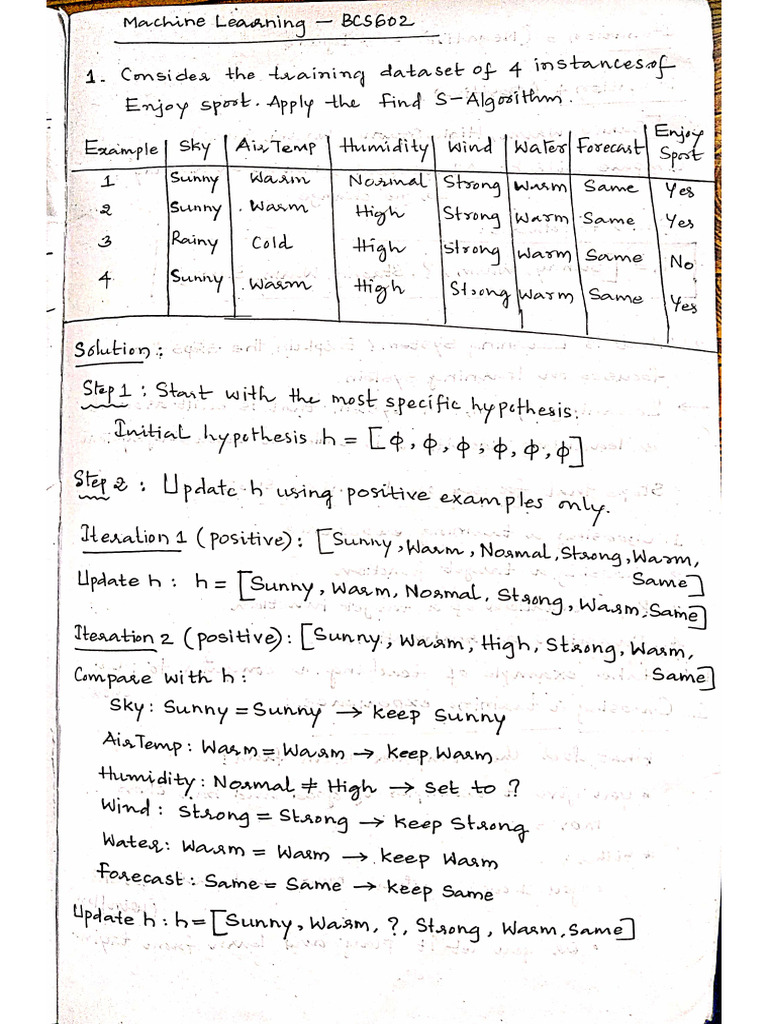 Machine Learning - BCS602
1. Consider the training dataset of 4 instances of
Enjoy sport. Apply the find S-Algorithm.
Example | Sky | AirTemp | Humidity | Wind | Water | Forecast | Enjoy Sport
1 Sunny Warm Normal Strong Warm Same Yes
2 Sunny Warm High Strong Warm Same Yes
3 Rainy Cold High Strong Warm Same No
4 Sunny Warm High Strong Warm Same Yes
Solution:
Step 1 : Start with the most specific hypothesis.
Initial hypothesis h = [ϕ, ϕ, ϕ, ϕ, ϕ, ϕ]
Step 2 : Update h using positive examples only.
Iteration 1 (positive): [Sunny, Warm, Normal, Strong, Warm,
Same]
Update h : h = [Sunny, Warm, Normal, Strong, Warm, Same]
Iteration 2 (positive): [Sunny, Warm, High, Strong, Warm,
Same]
Compare with h :
Sky : Sunny = Sunny → keep Sunny
AirTemp : Warm = Warm → keep Warm
Humidity : Normal ≠ High → set to ?
Wind : Strong = Strong → keep Strong
Water : Warm = Warm → keep Warm
Forecast : Same = Same → keep Same
Update h : h = [Sunny, Warm, ?, Strong, Warm, Same]